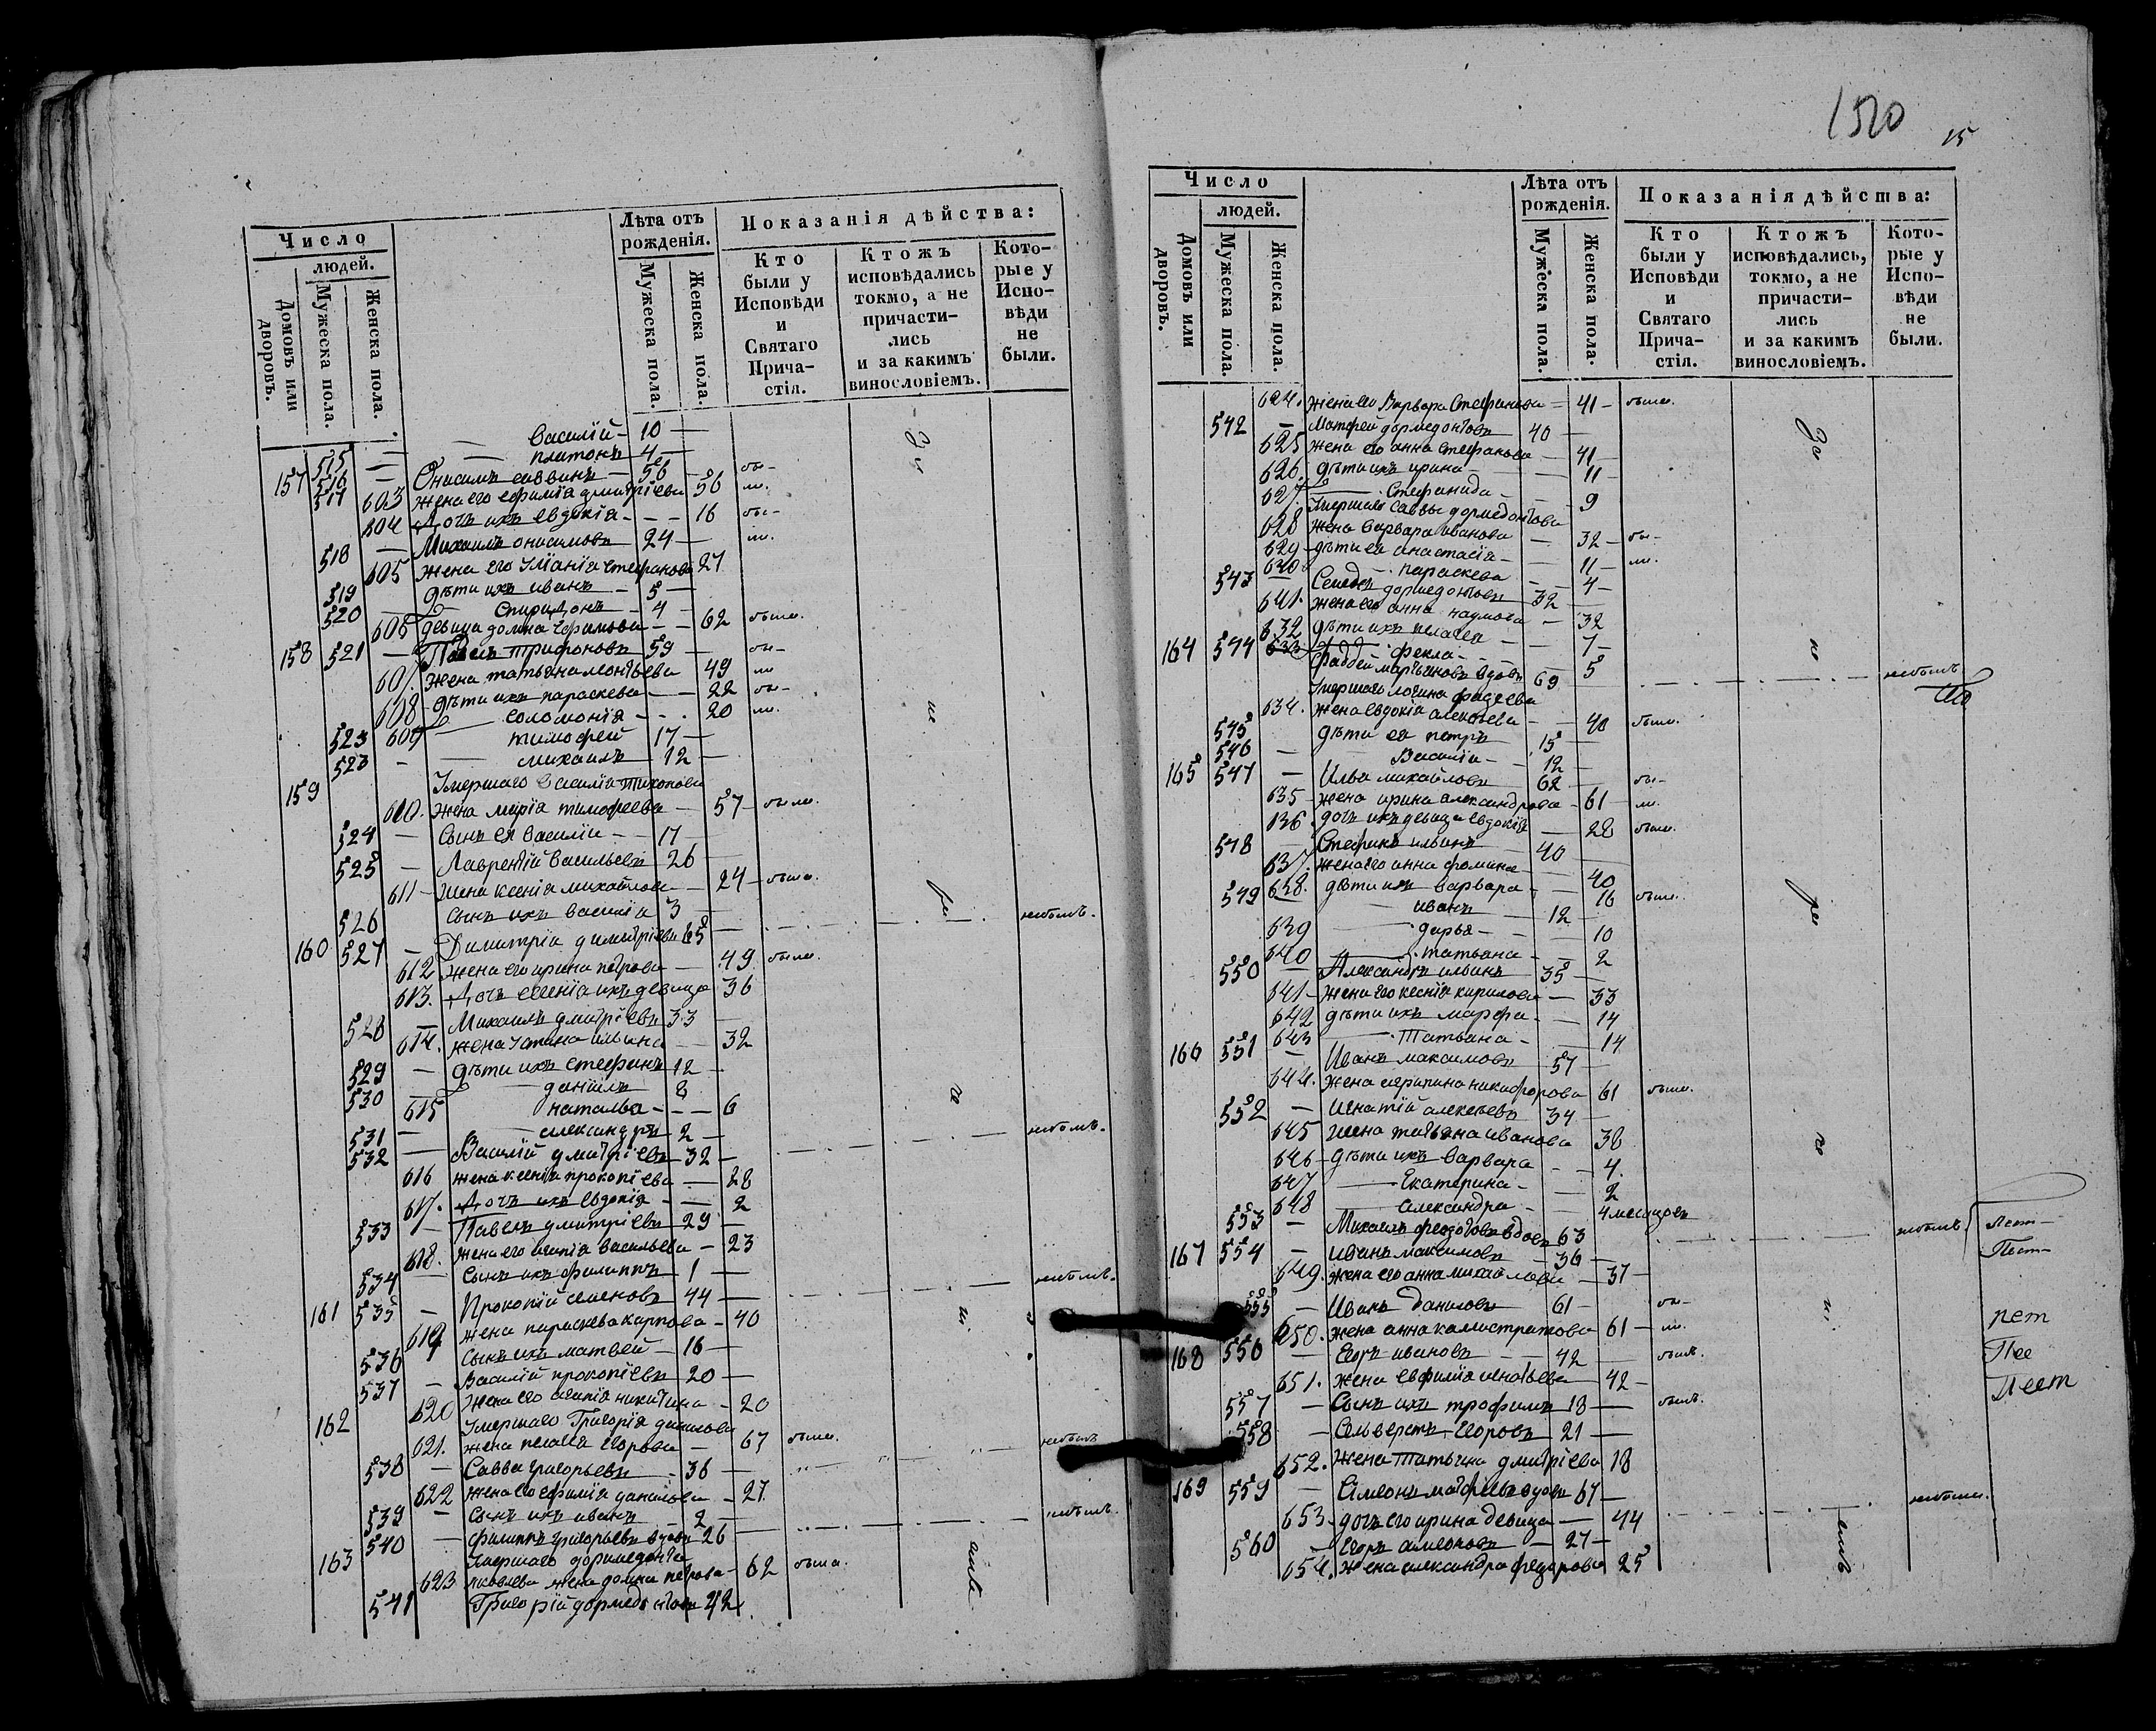 Число
людей.
Домовъ или дворовъ.
Мужеска пола.
Женска пола.
Лѣта отъ рожденія.
Мужеска пола.
Женска пола.
Показанія дѣйства:
Кто были у Исповѣди и Святаго Прича-стія.
Ктожъ исповѣдались токмо, а не причасти-лись и за какимъ винословіемъ.
Кото-рые у Испо-вѣди не были.
Василій 10
515 Платонъ 4
157 516 Онисимъ саввинъ 56 бы-
517 603 Жена его Ефимія дмитріева 56 ли.
604 Дочь ихъ Евдокія 16 бы-
518 Михаилъ онисимовъ 24 ли.
605 Жена его Стефанова 27
519 Дѣти ихъ иванъ 5
520 Спиридонъ 4
606 девица домна 62 были.
158 521 Павелъ трифоновъ 59 бы-
607 Жена татьяна 49 ли
608 Дѣти ихъ параскева 22 бы-
609 соломонія 20 ли.
523 тимофей 17
523 михаилъ 12
159 Умершаго Василія Тихонова
610. Жена марія тимофеева 57 были.
524 Сынъ ея василій 17
525 Лаврентій васильевъ 26
611 Жена ксенія михайлова 24 были.
526 Сынъ ихъ василій 3
160 527 Димитрій димитріевъ 65 небылъ.
612 Жена его ирина петрова 49 были.
613. Дочь ксенія ихъ девица 36
528 Михаилъ дмитріевъ 33
614. Жена устина ильина 32
529 Дѣти ихъ стефанъ 12
530 даніилъ 8
615 наталья 6
531 александръ 2
532 Василій дмитріевъ 32 небылъ.
616 Жена ксенія прокопіева 28
617. Дочь ихъ евдокія 2
533 Павелъ дмитріевъ 29
618. Жена его васильева 23
534 Сынъ ихъ филиппъ 1
161 535 Прокопій семеновъ 44 небылъ.
619 Жена параскева карпова 40
536 Сынъ ихъ матвей 16
537 Василій прокопіевъ 20
620 Жена его никитина 20
162 Умершаго Григорія данилова
621. Жена пелагея егорова 67 были.
538 Савва григорьевъ 36 небылъ
622 Жена его ефимія данилова 27
539 Сынъ ихъ иванъ 2
540 Филиппъ григорьевъ вдовъ 26 небылъ.
163 Умершаго
623 яковлева жена домна петрова 62 была.
541 Григорій 42
1520
15
Число
людей.
Домовъ или дворовъ.
Мужеска пола.
Женска пола.
Лѣта отъ рожденія.
Мужеска пола.
Женска пола.
Показанія дѣйства:
Кто были у Исповѣди и Святаго Прича-стія.
Ктожъ исповѣдались, токмо, а не причасти-лись и за какимъ винословіемъ.
Кото-рые у Испо-вѣди не были.
624. Жена его Варвара Стефанова 41 были.
542 Матфей дормедонтовъ 40
625 Жена его анна стефанова 41
626. Дѣти ихъ ирина 11
627 Стефанида 9
Умершаго Саввы дормедонтова
628 Жена варвара иванова 32 бы-
629 Дѣти ея анастасія 11 ли.
630 параскева 4
543 дормедонтовъ 32
641. Жена его анна наумова 32
632 Дѣти ихъ пелагея 7
633 фекла 5
164 544 Фаддей вдовъ 69 небылъ
Умершаго логина фадеева
634. Жена евдокія алексѣева 40 были.
545 Дѣти ея петръ 15
546 Василій 12
165 547 Илья михайловъ 62 бы-
635 Жена ирина александрова 61 ли.
136. Дочь ихъ девица евдокія 28 были.
548 Стефанъ ильинъ 40
637. Жена его анна фомина 40
638. Дѣти ихъ варвара 16 были.
549 иванъ 12
639 дарья 10
640 татьяна 2
550 Александръ ильинъ 35
641 Жена его ксенія кирилова 33
642 Дѣти ихъ марфа 14
643 Татьяна 14
166 551 Иванъ максимовъ 57
644. Жена никифорова 61 были.
552 Игнатій алексѣевъ 34
645 Жена татьяна иванова 38
646 Дѣти ихъ варвара 4.
647 Екатерина 2
648 александра 4 месяцовъ
553 Михаилъ вдовъ 63 небылъ
167 554 иванъ максимовъ 36
649. Жена его анна михайлова 37
555 Иванъ даниловъ 61 бы-
650. Жена анна каллистратова 61 ли.
168 556 Егоръ ивановъ 42 былъ.
651. Жена евфимія игнатьева 42
557 Сынъ ихъ трофимъ 18 былъ.
558 Сельверстъ Егоровъ 21
652. Жена Татьяна дмитріева 18
169 559 Симеонъ вдовъ 67
653. Дочь его ирина девица 44 небыли.
560 Егоръ симеоновъ 27
654. Жена александра федорова 25